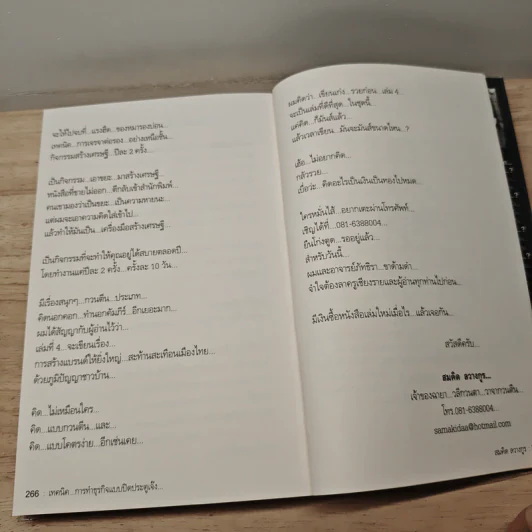 จะให้ไปจบที่...แรงฮึด...ของหมารองบ่อน...
เทคนิค...การเจรจาต่อรอง...อย่างเหนือชั้น...
กิจกรรมสร้างเศรษฐี...ปีละ 2 ครั้ง...
เป็นกิจกรรม...เอาขยะ...มาสร้างเศรษฐี...
หนังสือที่ขายไม่ออก...ตีกลับเข้าสำนักพิมพ์...
คนเขามองว่าเป็นขยะ...เป็นความหายนะ...
แต่ผมจะเอาความคิดใส่เข้าไป...
แล้วทำให้มันเป็น...เครื่องมือสร้างเศรษฐี...
เป็นกิจกรรมที่จะทำให้คุณอยู่ได้สบายตลอดปี...
โดยทำงานแค่ปีละ 2 ครั้ง...ครั้งละ 10 วัน...
มีเรื่องสนุกๆ...กวนตีน...ประเภท...
คิดนอกคอก...ทำนอกคัมภีร์...อีกเยอะมาก...
ผมได้สัญญากับผู้อ่านไว้ว่า...
เล่มที่ 4...จะเขียนเรื่อง...
การสร้างแบรนด์ให้ยิ่งใหญ่...สะท้านสะเทือนเมืองไทย...
ด้วยภูมิปัญญาชาวบ้าน...
คิด...ไม่เหมือนใคร...
คิด...แบบกวนตีน...และ...
คิด...แบบโคตรง่าย...อีกเช่นเคย...
266 เทคนิค...การทำธุรกิจแบบปิดประตูเจ๊ง...
ผมคิดว่า...เขียนเก่ง...รวยก่อน...เล่ม 4...
จะเป็นเล่มที่ดีที่สุด...ในชุดนี้...
แค่คิด...ก็มันส์แล้ว...
แล้วเวลาเขียน...มันจะมันส์ขนาดไหน...?
เฮ้อ...ไม่อยากคิด...
กลัวรวย...
เบื่อว่ะ...คิดอะไรเป็นเงินเป็นทองไปหมด...
ใครหมั่นไส้...อยากเตะผ่านโทรศัพท์...
เชิญได้ที่...081-6388004...
ยืนโก่งตูด...รออยู่แล้ว...
สำหรับวันนี้...
ผมและอาจารย์ภัทธิรา...ขาด้ามดำ...
จำใจต้องลาครูเชียงรายและผู้อ่านทุกท่านไปก่อน...
มีเงินซื้อหนังสือเล่มใหม่เมื่อไร...แล้วเจอกัน...
สวัสดีครับ...
สมคิด ลวางกูร...
เจ้าของฉายา...วลีกวนตา...วาจากวนตีน...
โทร.081-6388004...
samakidaa@hotmail.com
สมคิด ลวางกูร